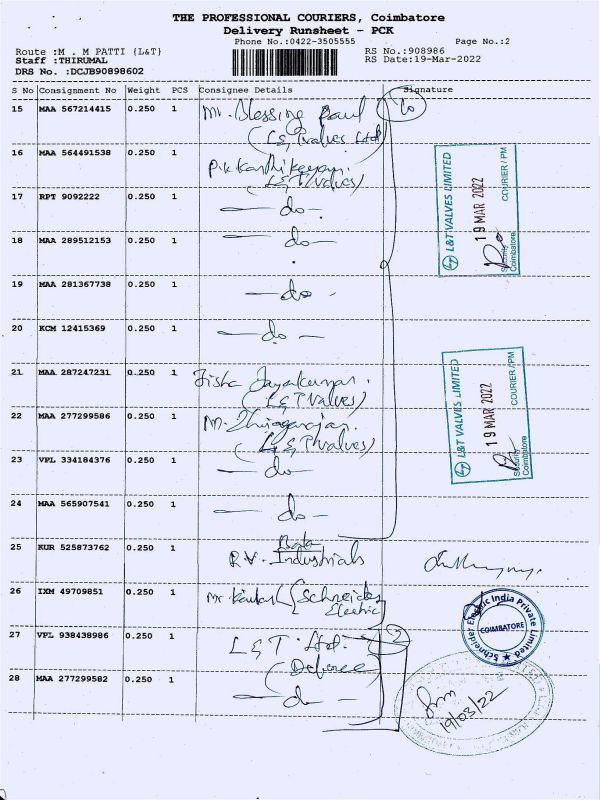 THE PROFESSIONAL COURIERS, Coimbatore
Delivery Runsheet - PCK
Phone No.:0422-3505555
Page No.:2
Route :M . M PATTI {L&T}
RS No.:908986
Staff :THIRUMAL
RS Date:19-Mar-2022
DRS No. :DCJB90898602
S No Consignment No Weight PCS Consignee Details Signature
15 MAA 567214415 0.250 1 Mr. Blessing Paul
(L&T Valves Ltd)
10
16 MAA 564491538 0.250 1 P.K. Karthikeyan.
(L&T Valves)
17 RPT 9092222 0.250 1 — do —
18 MAA 289512153 0.250 1 — do —
19 MAA 281367738 0.250 1 — do —
20 KCM 12415369 0.250 1 — do —
21 MAA 287247231 0.250 1 Jisha Jayakumar.
(L&T Valves)
22 MAA 277299586 0.250 1 Mr. Thiyagarajan.
(L&T Valves)
23 VPL 334184376 0.250 1 — do —
24 MAA 565907541 0.250 1 — do —
25 KUR 525873762 0.250 1
R.V. Industrials
26 IXM 49709851 0.250 1 Mr. (Schneider
Electric
27 VPL 938438986 0.250 1 L&T. Ltd.
(Defence)
2
28 MAA 277299582 0.250 1 — do —
L&T VALVES LIMITED
19 MAR 2022
COURIER / PM
Security
Coimbatore
L&T VALVES LIMITED
19 MAR 2022
COURIER / PM
Security
Coimbatore
Schneider Electric India Private Limited
COIMBATORE
19/03/22